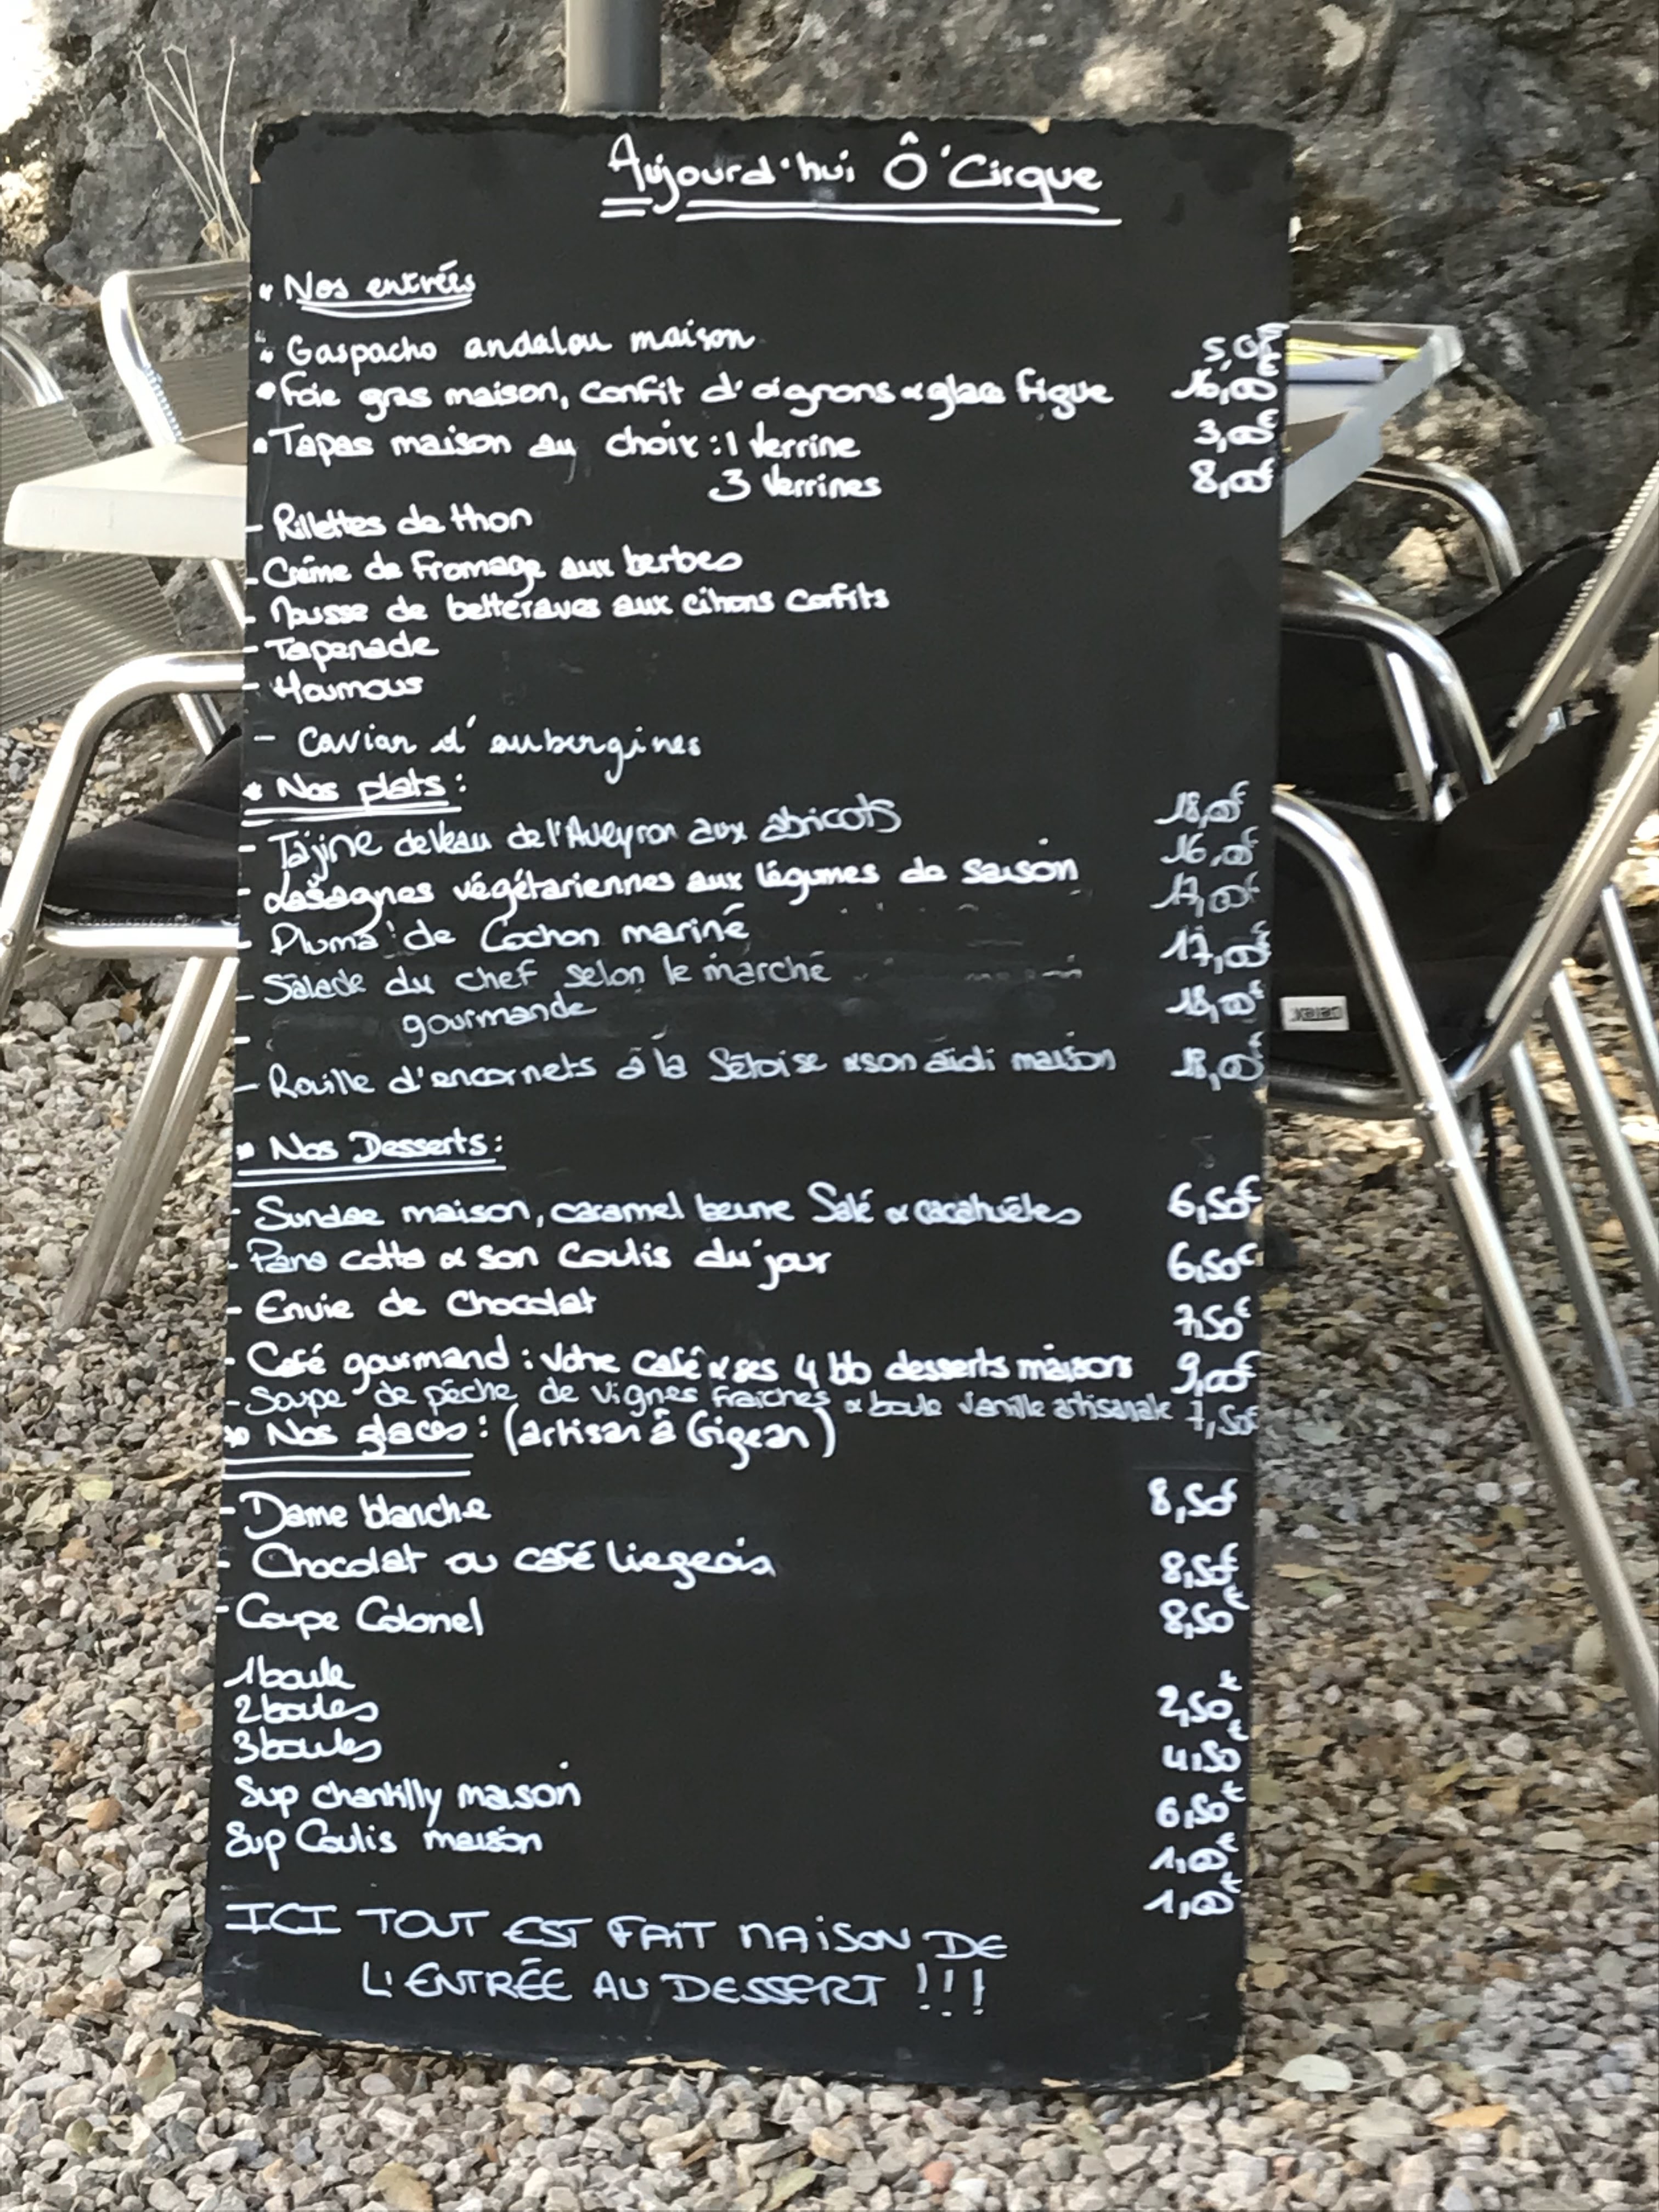 Aujourd'hui Ô'Cirque
* Nos entrées
Gaspacho andalou maison 5,0€
Foie gras maison, confit d'oignons & glace figue 16,00€
Tapas maison au choix : 1 Verrine 3,00€
3 Verrines 8,00€
- Rillettes de thon
- Crème de fromage aux herbes
- Mousse de betteraves aux citrons confits
- Tapenade
- Houmous
- Caviar d'aubergines
* Nos plats :
- Tajine de Veau de l'Aveyron aux abricots 18,00€
- Lasagnes végétariennes aux légumes de saison 16,00€
- Pluma de Cochon mariné 17,00€
- Salade du chef selon le marché 17,00€
- gourmande 18,00€
- Rouille d'encornets à la Sétoise & son aïoli maison 18,00€
* Nos Desserts :
- Sundae maison, caramel beurre Salé & cacahuètes 6,50€
- Pana cotta & son Coulis du jour 6,50€
- Envie de Chocolat 7,50€
- Café gourmand : Votre Café & ses 4 bb desserts maisons 9,00€
- Soupe de pêche de Vignes fraîches & boule Vanille artisanale 7,50€
* Nos glaces : (artisan à Gigean)
- Dame blanche 8,50€
- Chocolat ou café liegeois 8,50€
- Coupe Colonel 8,50€
1 boule 2,50€
2 boules 4,50€
3 boules 6,50€
Sup chantilly maison 1,00€
Sup Coulis maison 1,00€
ICI TOUT EST FAIT MAISON DE
L'ENTRÉE AU DESSERT !!!